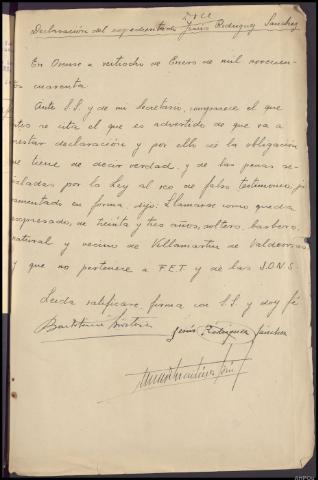 Declaración del expedientado Jesús Rodriguez Sanchez
En Orense a veintiocho de Enero de mil novecien
tos cuarenta.
Ante S.S. y de mi Secretario, comparece el que
antes se cita el que es advertido de que va a
prestar declaración y por ello de la obligación
que tiene de decir verdad y de las penas se-
ñaladas por la Ley al reo de falso testimonio, ju
ramentado en forma, dijo: Llamarse como queda
expresado, de treinta y tres años, soltero, barbero,
natural y vecino de Villamartin de Valdeorras
y que no pertenece a F.E.T. y de las J.O.N.S.
Leida ratificase, firma con S.S. y doy fé
Jesús Rodriguez Sánchez
AHPOU